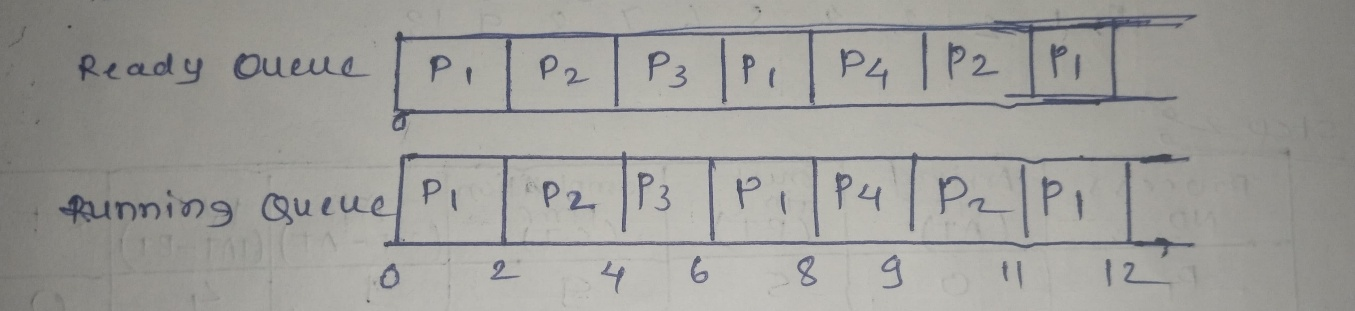 Ready Queue P1 P2 P3 P1 P4 P2 P1
0
Running Queue P1 P2 P3 P1 P4 P2 P1
0 2 4 6 8 9 11 12